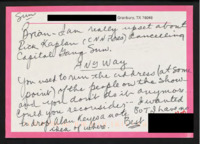 Sun
Granbury, TX 76049
Brian - I am really upset about
Rick Kaplan (CNN Pres) cancelling
Capital Gang Sun.
Any Way
You used to run the address (at some
point) of the people on the show
and you don't do it anymore
Could you reconsider - I wanted
to drop Alan Keyes a note BUT I have no
idea of where. Best